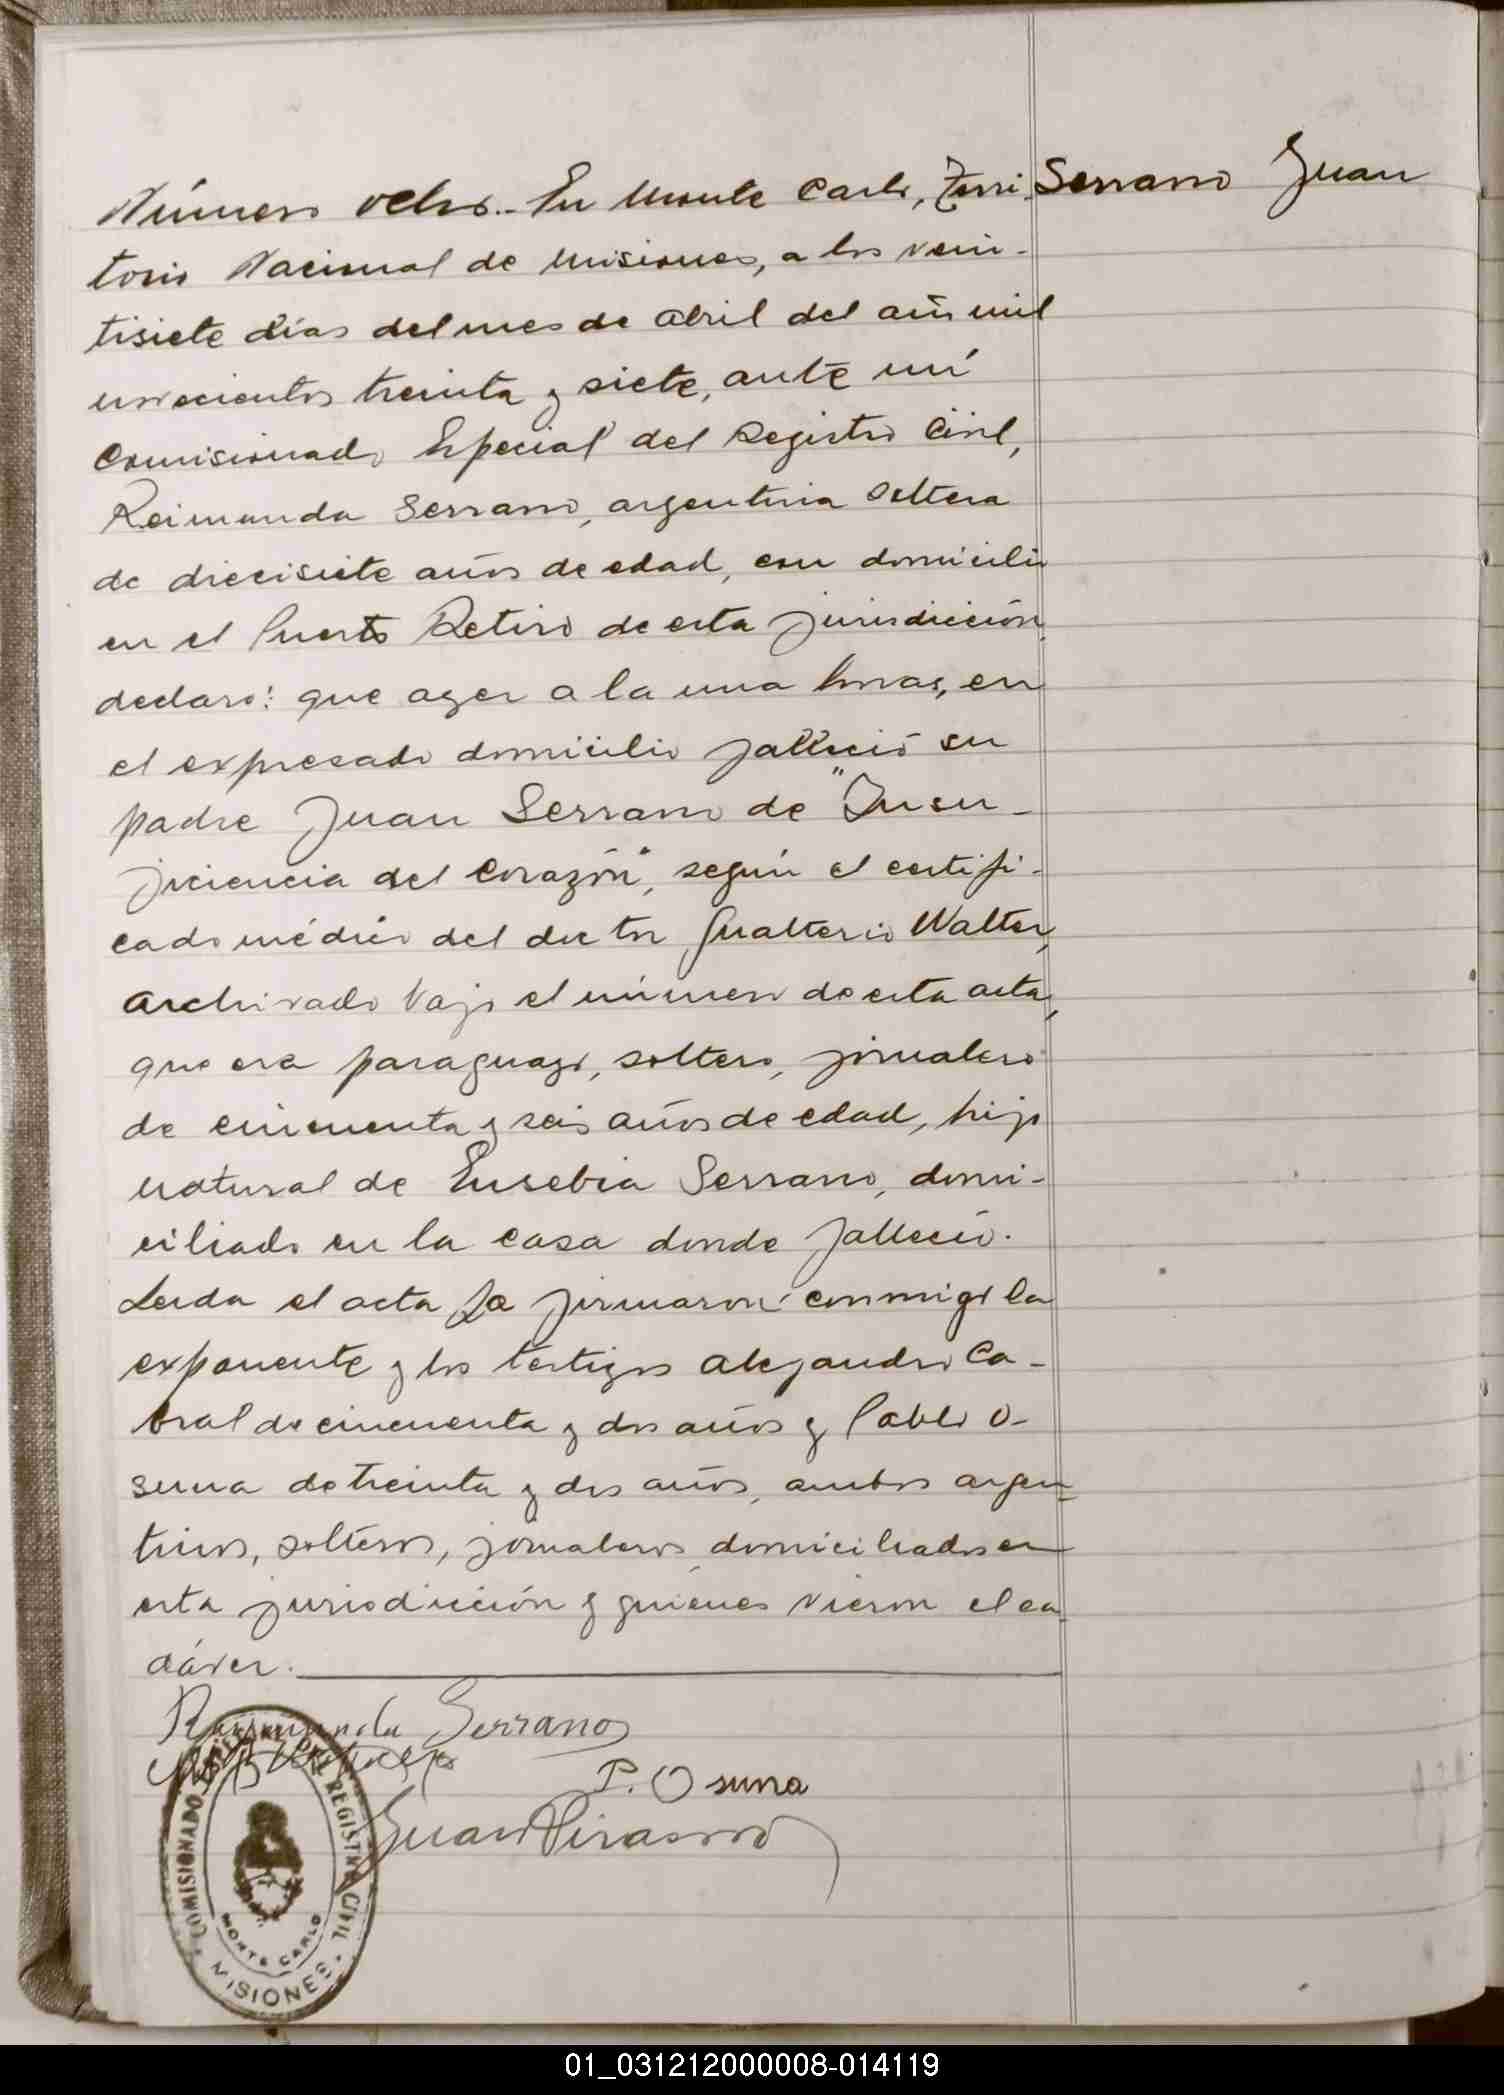 Número ocho.- En Monte Carlo, Terri- Serrano Juan
torio Nacional de Misiones, a los vein-
tisiete días del mes de abril del año mil
novecientos treinta y siete, ante mí
Comisionado Especial del Registro Civil,
Reimunda Serrano, argentina soltera
de diecisiete años de edad, con domicilio
en el Puerto Retiro de esta jurisdicción
declaró: que ayer a la una horas, en
el expresado domicilio falleció su
padre Juan Serrano de "Insu-
ficiencia del corazón", según el certifi-
cado médico del doctor Gualterio Walter,
archivado vajo el número de esta acta,
que era paraguayo, soltero, jornalero
de cincuenta y seis años de edad, hijo
natural de Eusebia Serrano, domi-
ciliado en la casa donde falleció.
Leida el acta la firmaron conmigo la
exponente y los testigos Alejandro Ca-
bral de cincuenta y dos años y Pablo O-
suna de treinta y dos años, ambos argen-
tinos, solteros, jornaleros domiciliados en
esta jurisdicción y quienes vieron el ca-
dáver.
Raimunda Serrano
P. Osuna
Juan
COMISIONADO ESPECIAL DEL REGISTRO CIVIL
MONTE CARLO
MISIONES
01_031212000008-014119